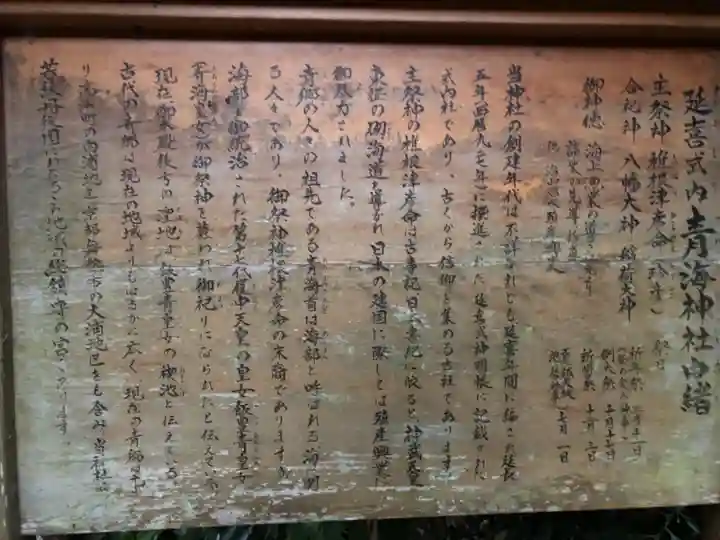 延喜式内 青海神社由緒
主祭神 椎根津彦命
合祀神 八幡大神 稲荷大神
御神徳 海上
祭日
祈年祭
例大祭
新嘗祭
七月一日
当神社の創建年代は不詳なれども延喜年間に編この延長
五年(西暦九二七年)に撰進された延喜式神明帳に記載された
式内社であり、古くから信仰を集める古社であります。
主祭神の椎根津彦命は古事記日本書紀に依ると神武天皇
東征の砌海道を導かれ日本の建国に際しては殖産興業に
御尽力されました。
青郷の人々の祖先である青海首は海部と呼ばれる海の
る人々であり、御祭神椎根津彦命の末裔であります。
海部を御統治された第十七代履中天皇の皇女飯豊青皇女
青海皇女が御祭神を敬われ御祀りになられたと伝えて
現在御本殿後方の聖地は飯豊青皇女の禊池と伝えている
古代の青郷は現在の地域よりもはるかに広く現在の青郷
り高浜町の内浦地区京都舞鶴市の大浦地区をも含み当神社は
若狭丹後国にわたる地域の総鎮守の宮であります。